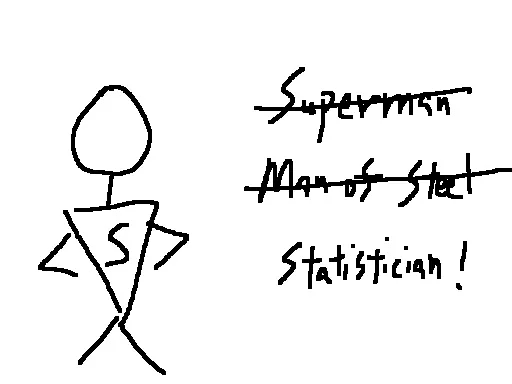 S
Superman
Man of Steel
Statistician!